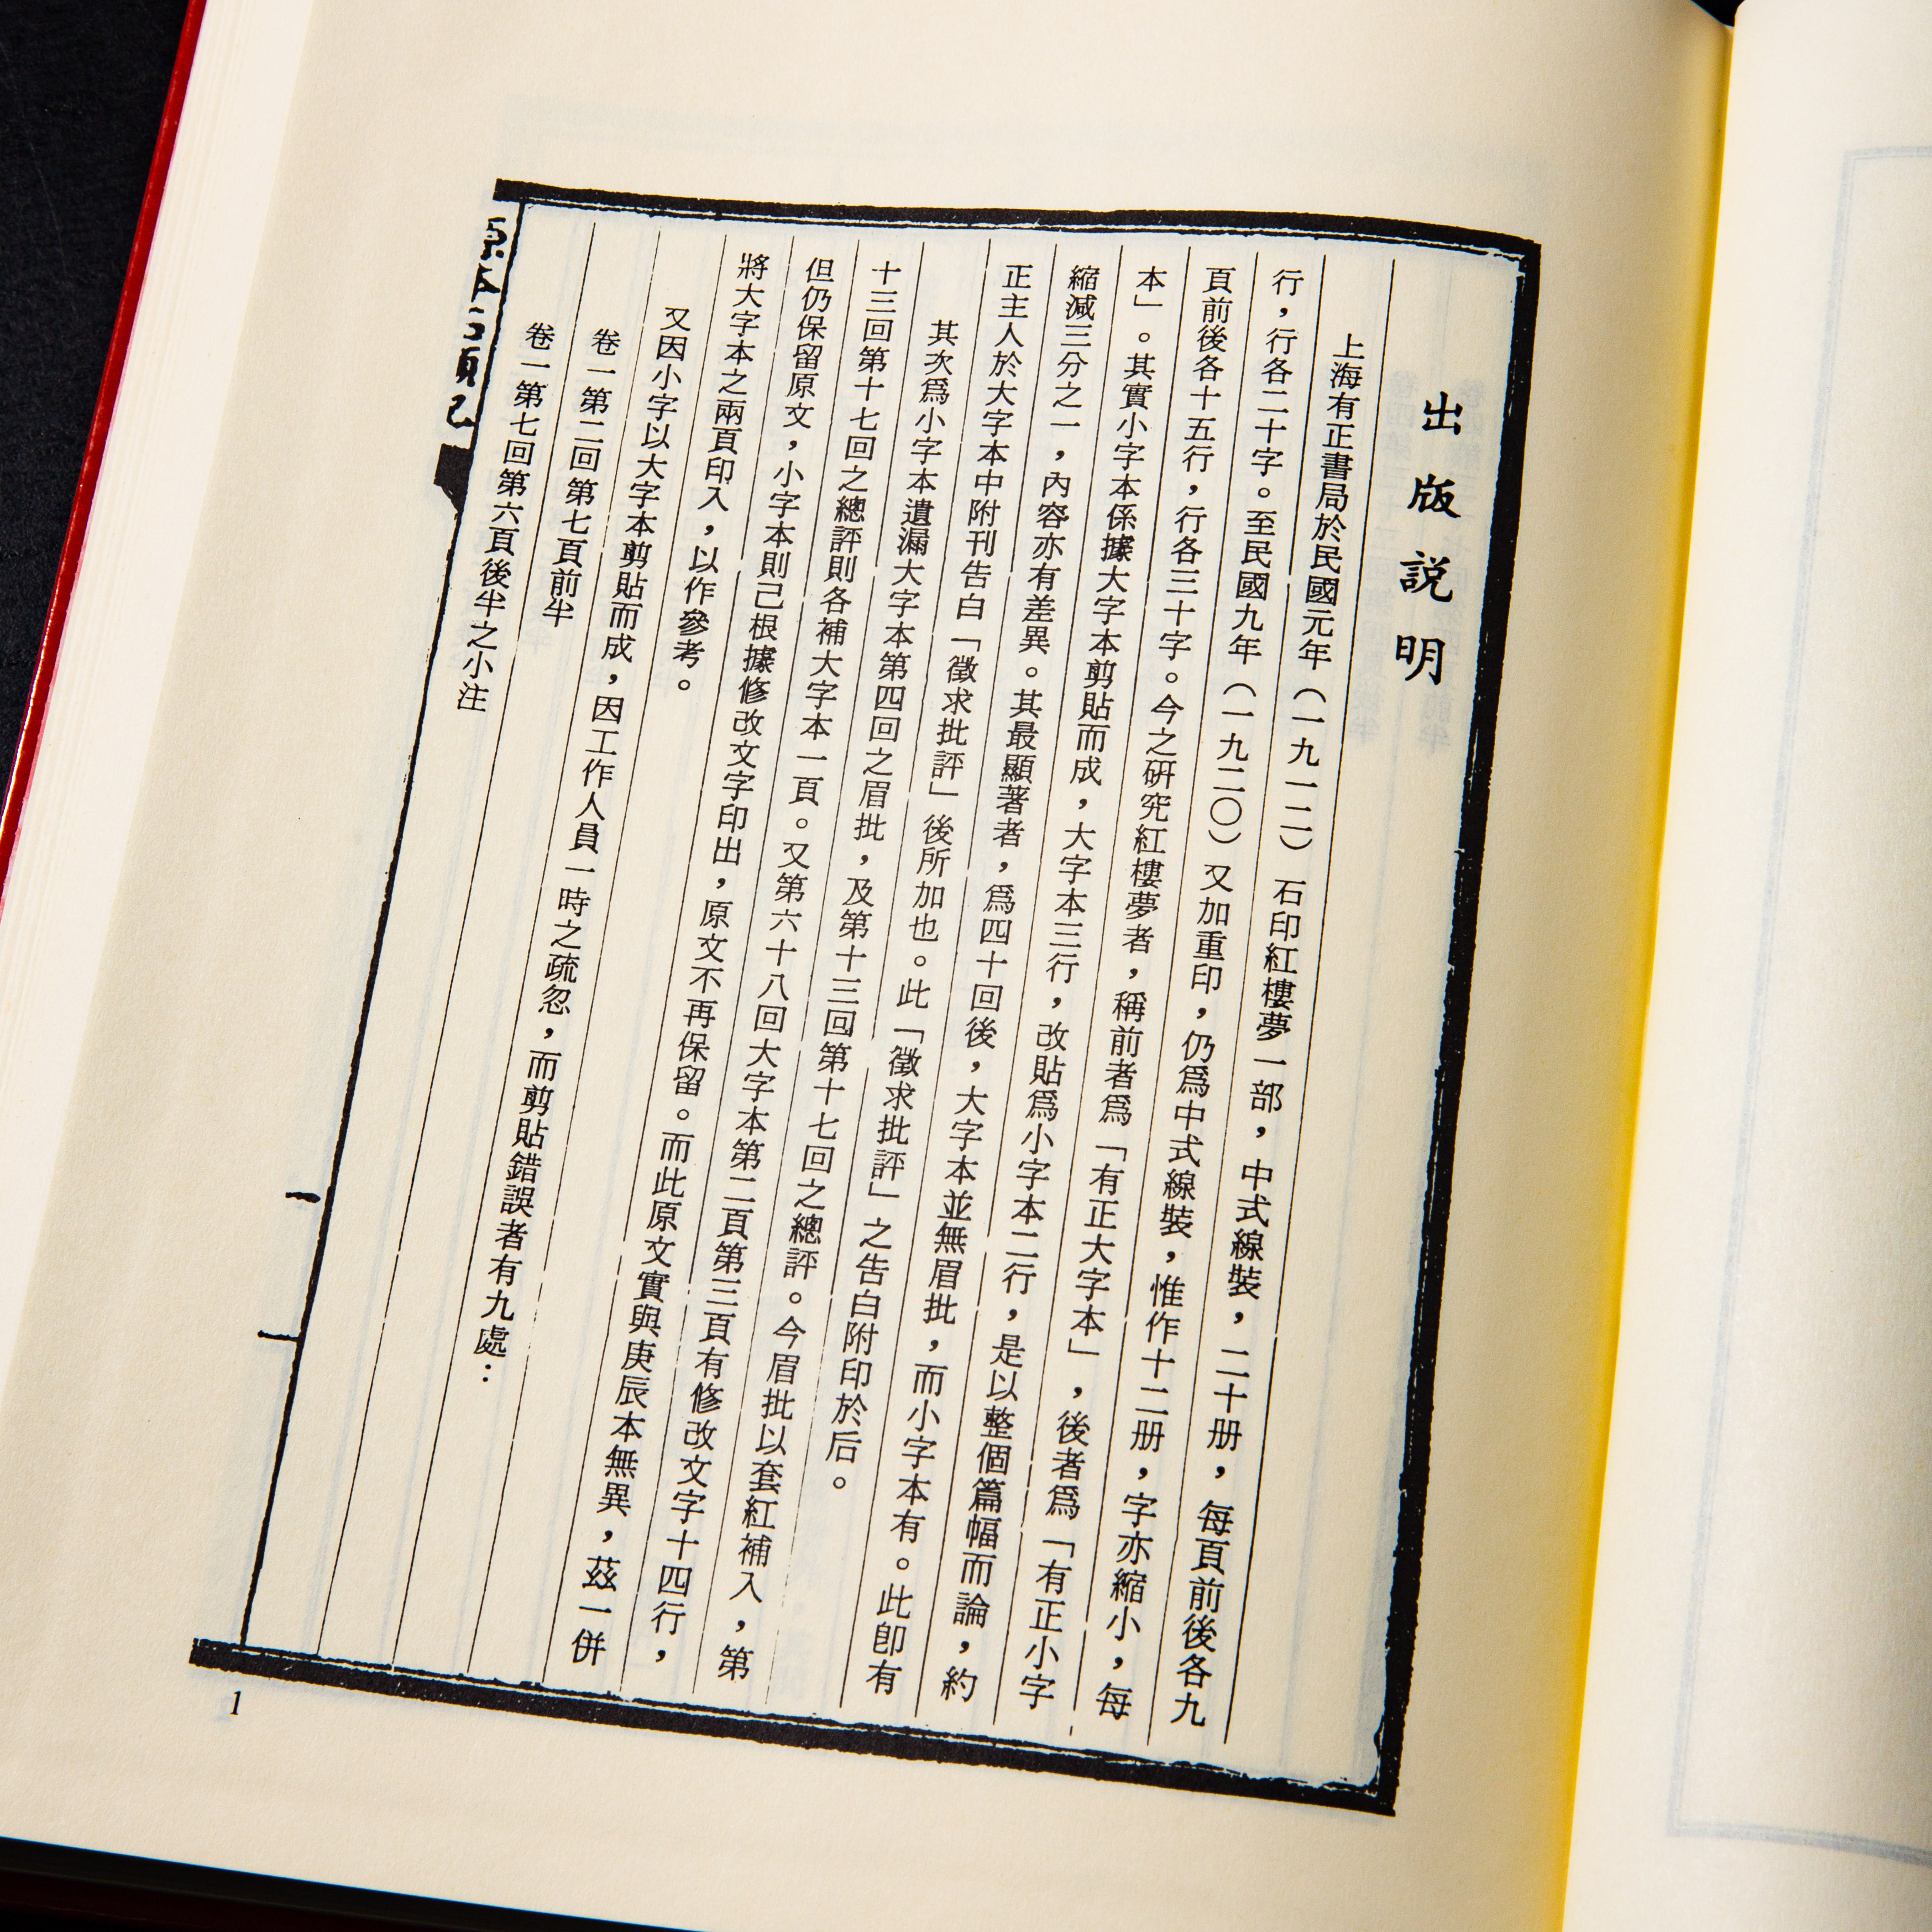 出版説明
上海有正書局於民國元年（一九一二）石印紅樓夢一部，中式線裝，二十册，每頁前後各九
行，行各二十字。至民國九年（一九二〇）又加重印，仍爲中式線裝，惟作十二册，字亦縮小，每
頁前後各十五行，行各三十字。今之研究紅樓夢者，稱前者爲「有正大字本」，後者爲「有正小字
本」。其實小字本係據大字本剪貼而成，大字本三行，改貼爲小字本二行，是以整個篇幅而論，約
縮減三分之一，內容亦有差異。其最顯著者，爲四十回後，大字本並無眉批，而小字本有。此卽有
正主人於大字本中附刊告白「徵求批評」後所加也。此「徵求批評」之告白附印於后。
其次爲小字本遺漏大字本第四回之眉批，及第十三回第十七回之總評。今眉批以套紅補入，第
十三回第十七回之總評則各補大字本一頁。又第六十八回大字本第二頁第三頁有修改文字十四行，
但仍保留原文，小字本則己根據修改文字印出，原文不再保留。而此原文實與庚辰本無異，茲一併
將大字本之兩頁印入，以作參考。
又因小字以大字本剪貼而成，因工作人員一時之疏忽，而剪貼錯誤者有九處：
卷一第二回第七頁前半
卷一第七回第六頁後半之小注
原本石頭記
1